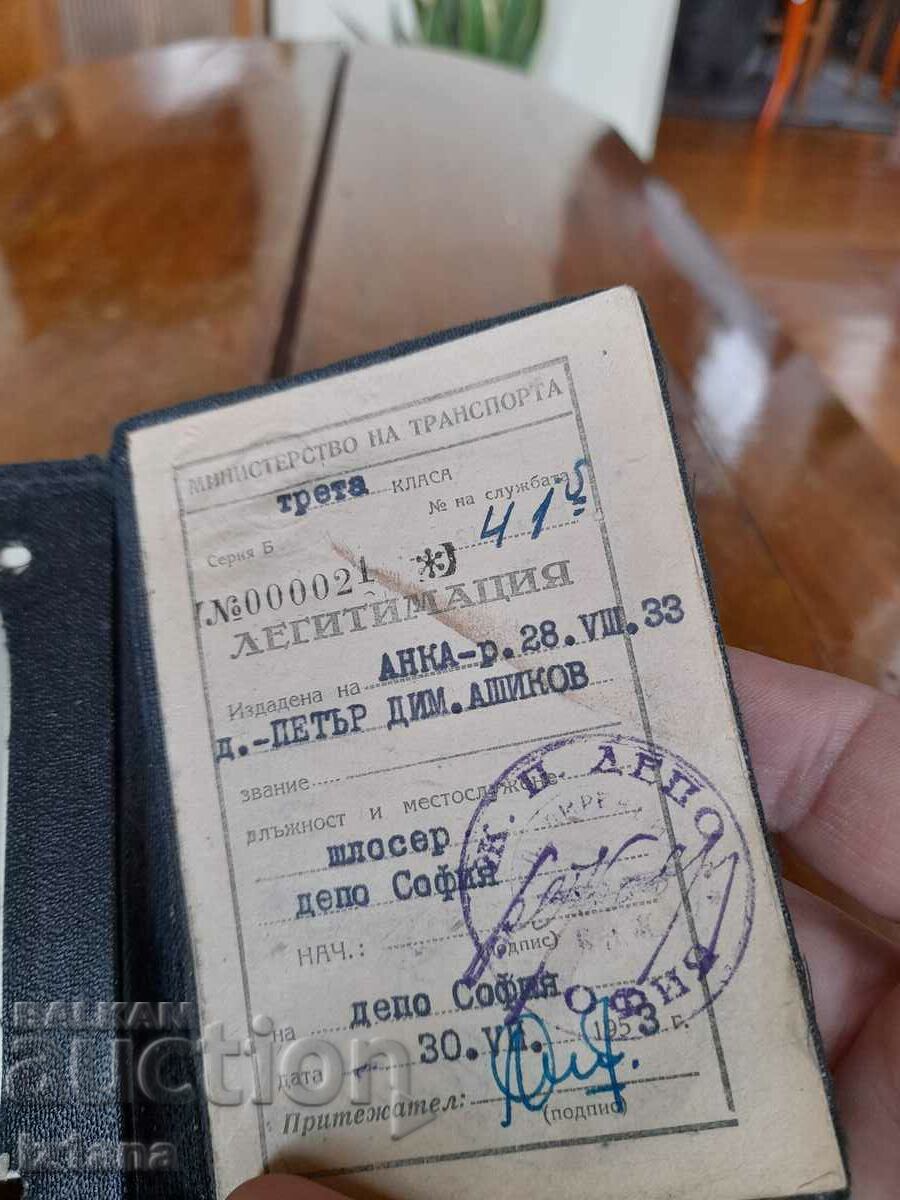 МИНИСТЕРСТВО НА ТРАНСПОРТА
трета КЛАСА
№ на службата 415
Серия Б
№000021
ЛЕГИТИМАЦИЯ
Издадена на АНКА-р.28.VIII.33
д.-ПЕТЪР ДИМ.АШИКОВ
звание
длъжност и местослужене
шлосер
депо София
НАЧ.:
(подпис)
на депо София
дата 30.VII. 1953 г.
Притежател:
(подпис)
ДЕПО
СОФИЯ
BALKAN
auction
iztania